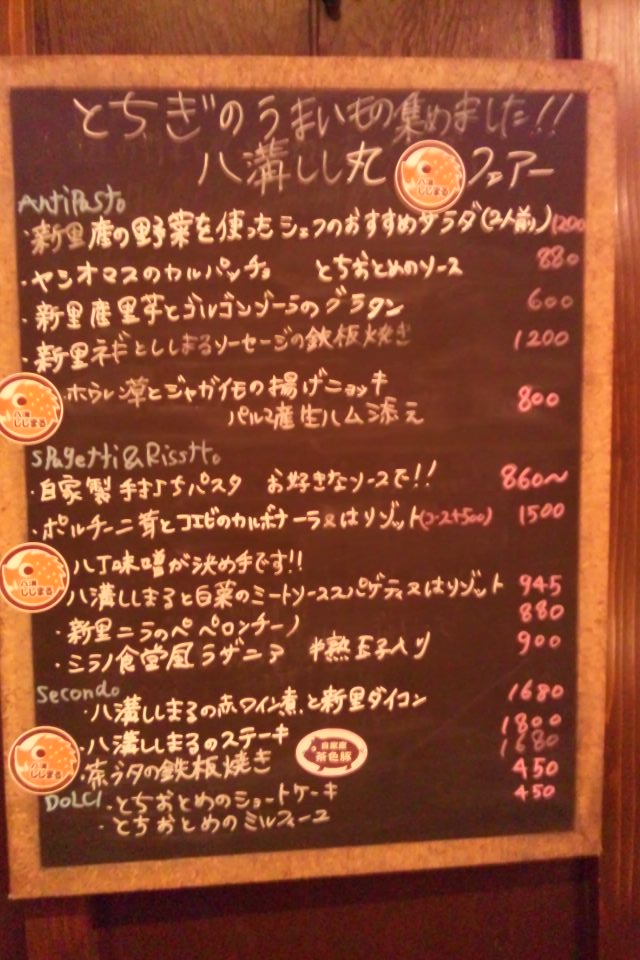 とちぎのうまいもの集めました!!
八溝しし丸 八溝ししまる フェアー
Antipasto
・新里産の野菜を使ったシェフのおすすめサラダ(2人前) 1200
・ヤシオマスのカルパッチョ とちおとめのソース 880
・新里産里芋とゴルゴンゾーラのグラタン 600
・新里ネギとししまるソーセージの鉄板焼き 1200
八溝ししまる ホウレン草とジャガイモの揚げニョッキ 800
パルマ産生ハム添え
SPagetti&Risstto
・自家製手打ちパスタ お好きなソースで!! 860〜
・ポルチーニ茸とコエビのカルボナーラ又はリゾット(コース+500) 1500
八丁味噌が決め手です!!
八溝ししまる 八溝ししまると白菜のミートソーススパゲティ又はリゾット 945
・新里ニラのペペロンチーノ 880
・ミラノ食堂風ラザニア 半熟玉子入り 900
Secondo
・八溝ししまるの赤ワイン煮と新里ダイコン 1680
・八溝ししまるのステーキ 1800
八溝ししまる ブタの鉄板焼き 茶色豚 1680
DOLCI ・とちおとめのショートケーキ 450
・とちおとめのミルフィーユ 450